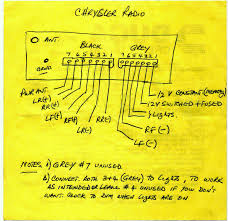 CHRYSLER RADIO
ANT.
BLACK
GREY
7 6 5 4 3 2 1
7 6 5 4 3 2 1
GRND
12 V CONSTANT (MEMORY)
12V SWITCHED + FUSED
LIGHTS
PWR ANT.
LR(+)
RR(+)
LF(+)
RF(+)
LR(-)
RR(-)
LF(-)
RF(-)
NOTES
1) GREY #7 UNUSED
2) CONNECT BOTH 3+4 (GREY) TO LIGHTS, TO WORK
AS INTENDED OR LEAVE #4 UNUSED IF YOU DON'T
WANT RADIO TO DIM WHEN LIGHTS ARE ON